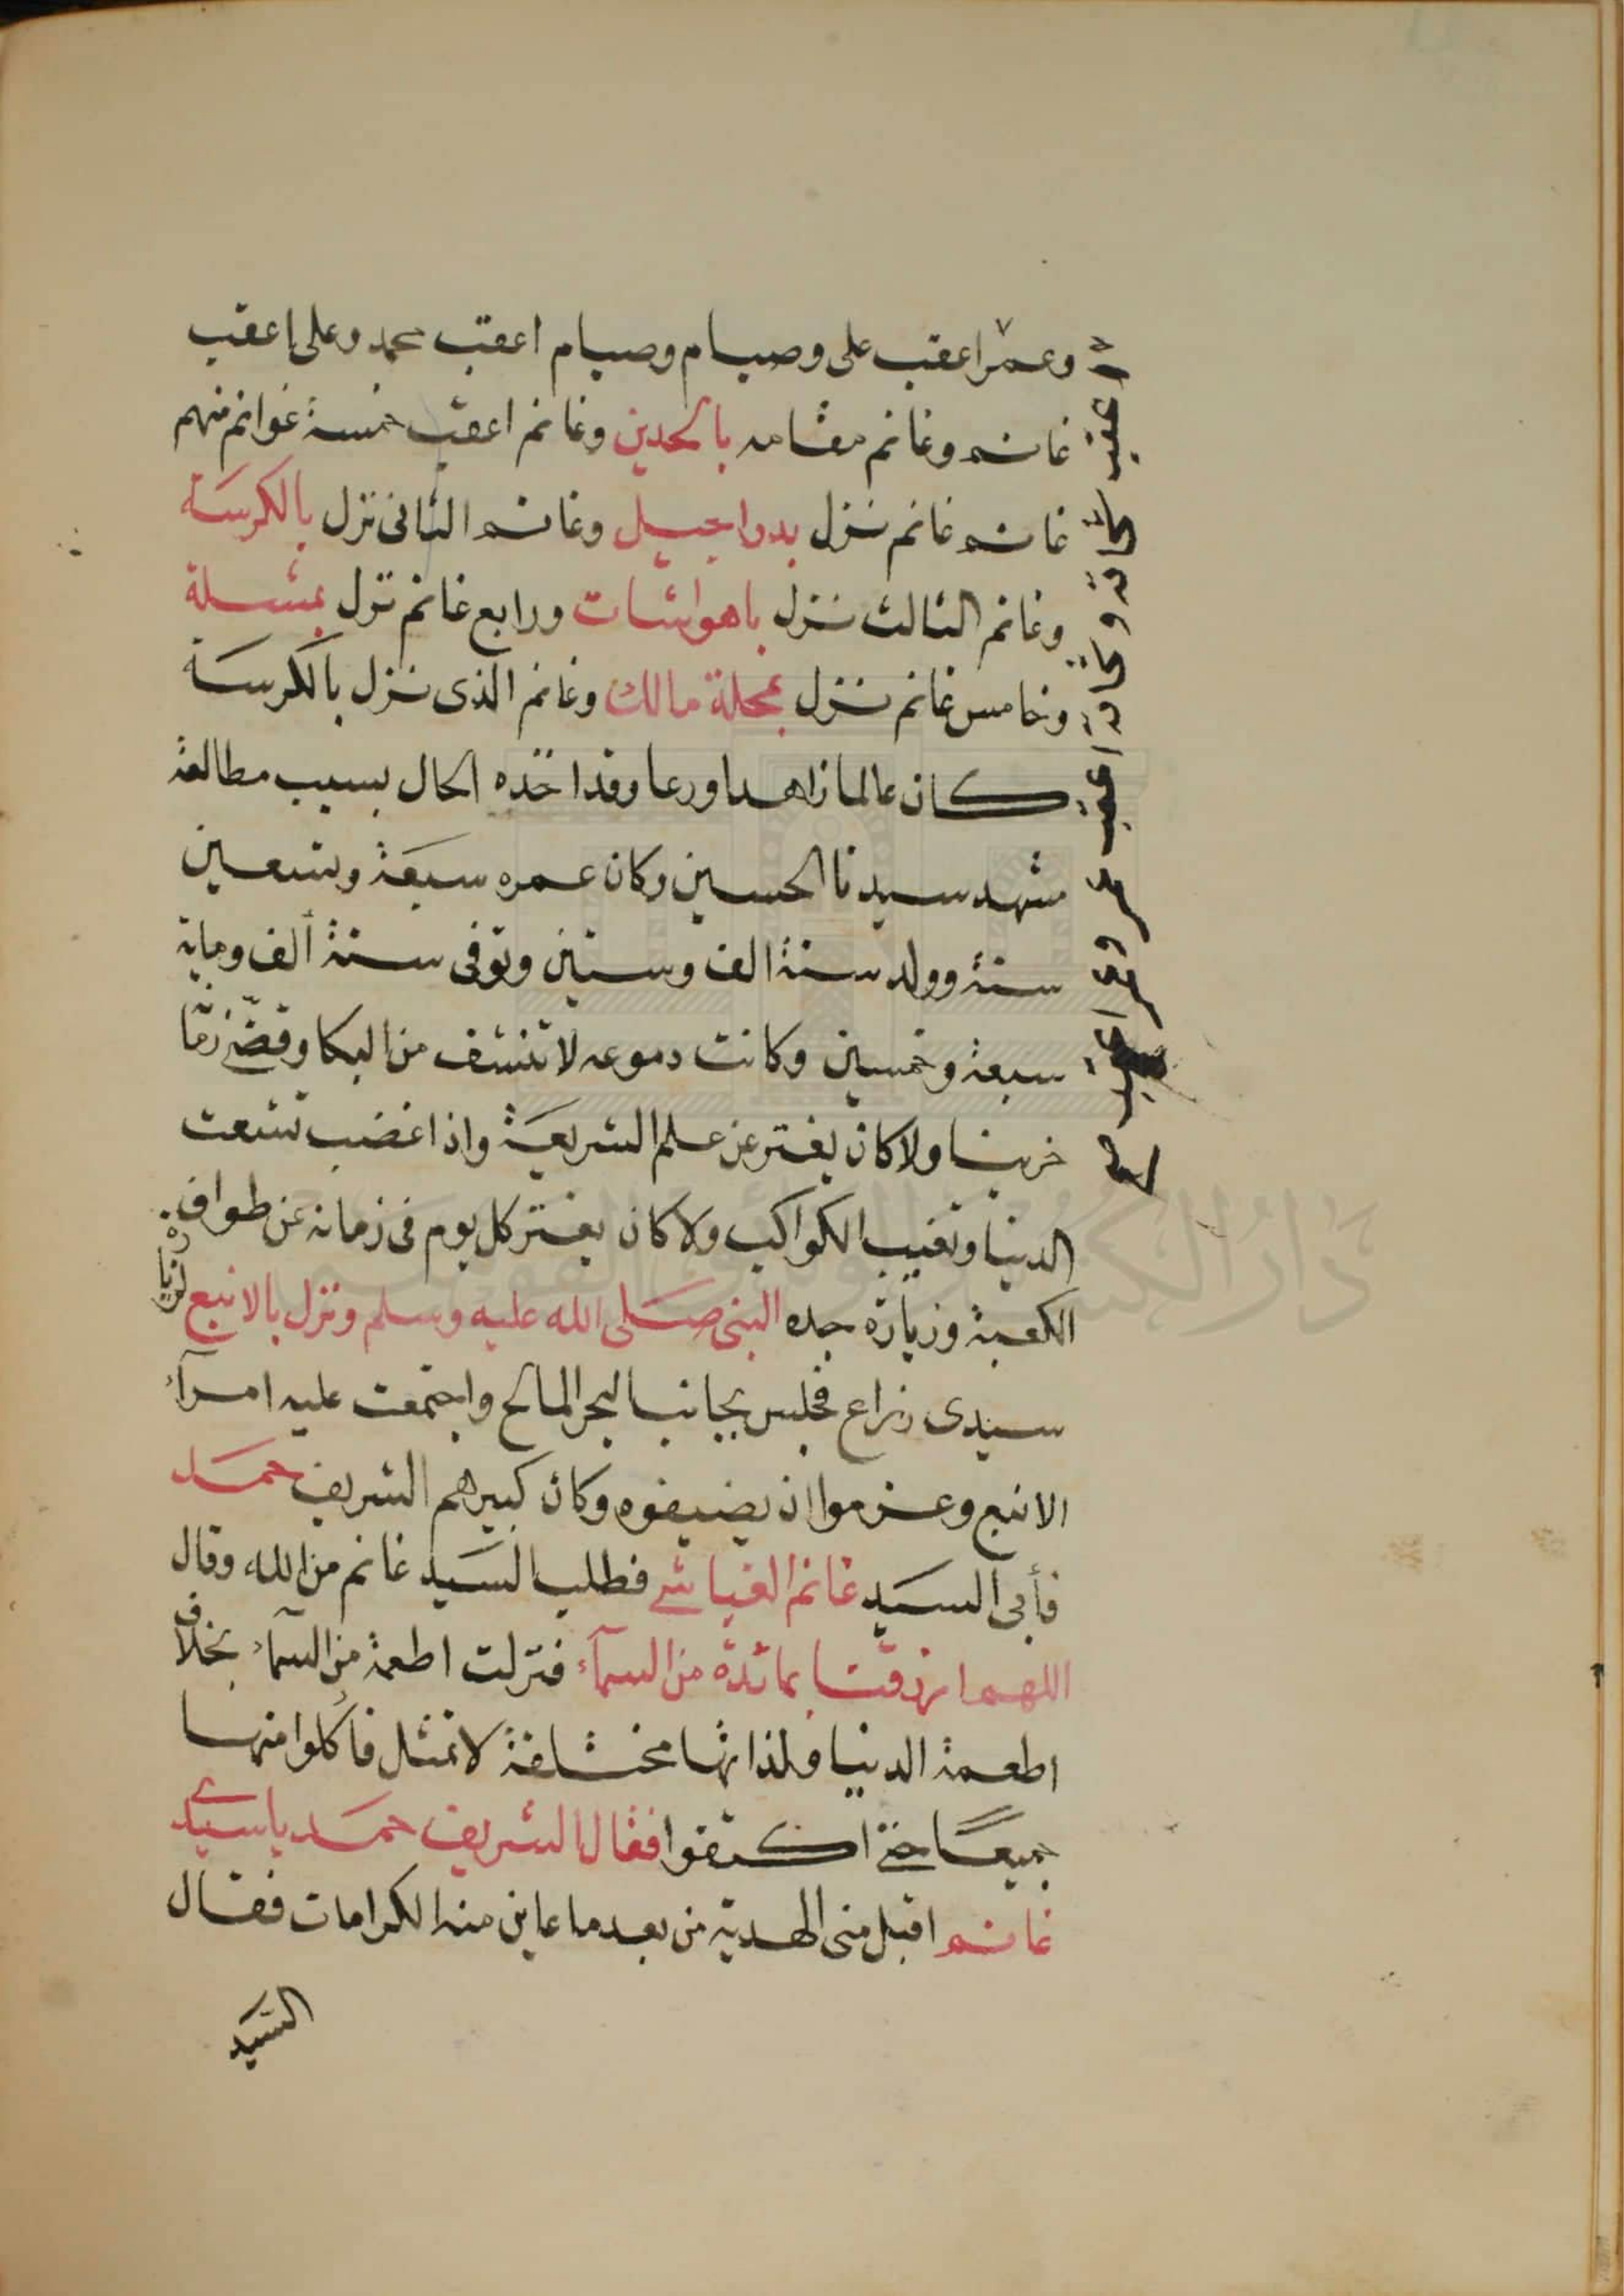 وعمر اعقب على وصيام وصيام اعقب محمد وعلى اعقب
غانم وغانم مقامه بالحدين وغانم اعقب خمسة غوانم منهم
غانم غانم نزل بدوا جبيل وغانم الثانى نزل بالكرسة
وغانم الثالث نزل باهواشات ورابع غانم نزل بمشلة
وخامس غانم نزل بمحلة مالك وغانم الذى نزل بالكرسة
كان عالما زاهدا ورعا وقد اخذه الحال بسبب مطالعة
مشهد سيدنا الحسين وكان عمره سبعة وتسعين
سنة وولد سنة الف وستين وتوفى سنة ألف وماية
سبعة وخمسين وكانت دموعه لا تنشف من البكا وقضى زمنا
حزينا ولا كان يفتر عن علم الشريعة واذا غضب تشعت
الدنيا وتغيب الكواكب ولا كان يفتر كل يوم فى زمانه عن طواف
الكعبة وزيارة جده النبى صلى الله عليه وسلم ونزل بالانبع لزيارة
سيدى زراع فجلس بجانب البحر المالح واجتمعت عليه امرآء
الانبع وعزموا ان يضيفوه وكان كبيرهم الشريف حمد
فأبى السيد غانم الغياشى فطلب السيد غانم من الله وقال
اللهم ارزقنا بمائدة من السمآء فنزلت اطعمة من السمآء بخلاف
اطعمة الدنيا ولذاتها مختلفة لا تمثل فأكلوا منها
جميعا حتى اكتفوا فقال الشريف حمد يا سيدى
غانم اقبل منى الهدية من بعد ما عاين منه الكرامات فقال
السيد
اعقب وعمر اعقب
دار الكتب والوثائق القومية